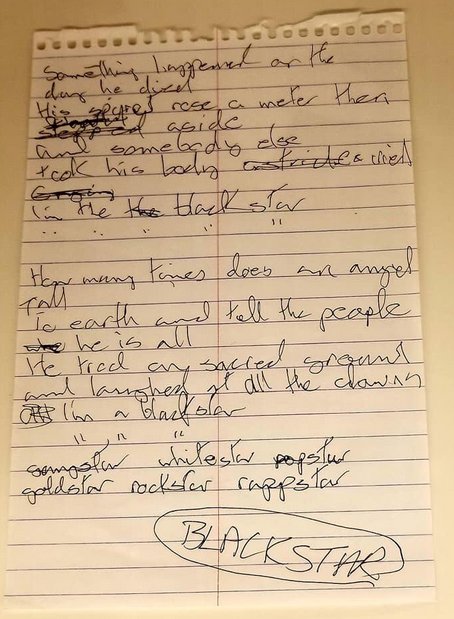 Something happened on the
day he died
His spirit rose a meter then
stepped aside
and somebody else
took his body & cried
I'm the the black star
" " " "
How many times does an angel
fall
To earth and tell the people
he is all
He trod on sacred ground
and laughed at all the clowns
I'm a blackstar
" " "
whitestar popstar
goldstar rockstar rappstar
BLACKSTAR